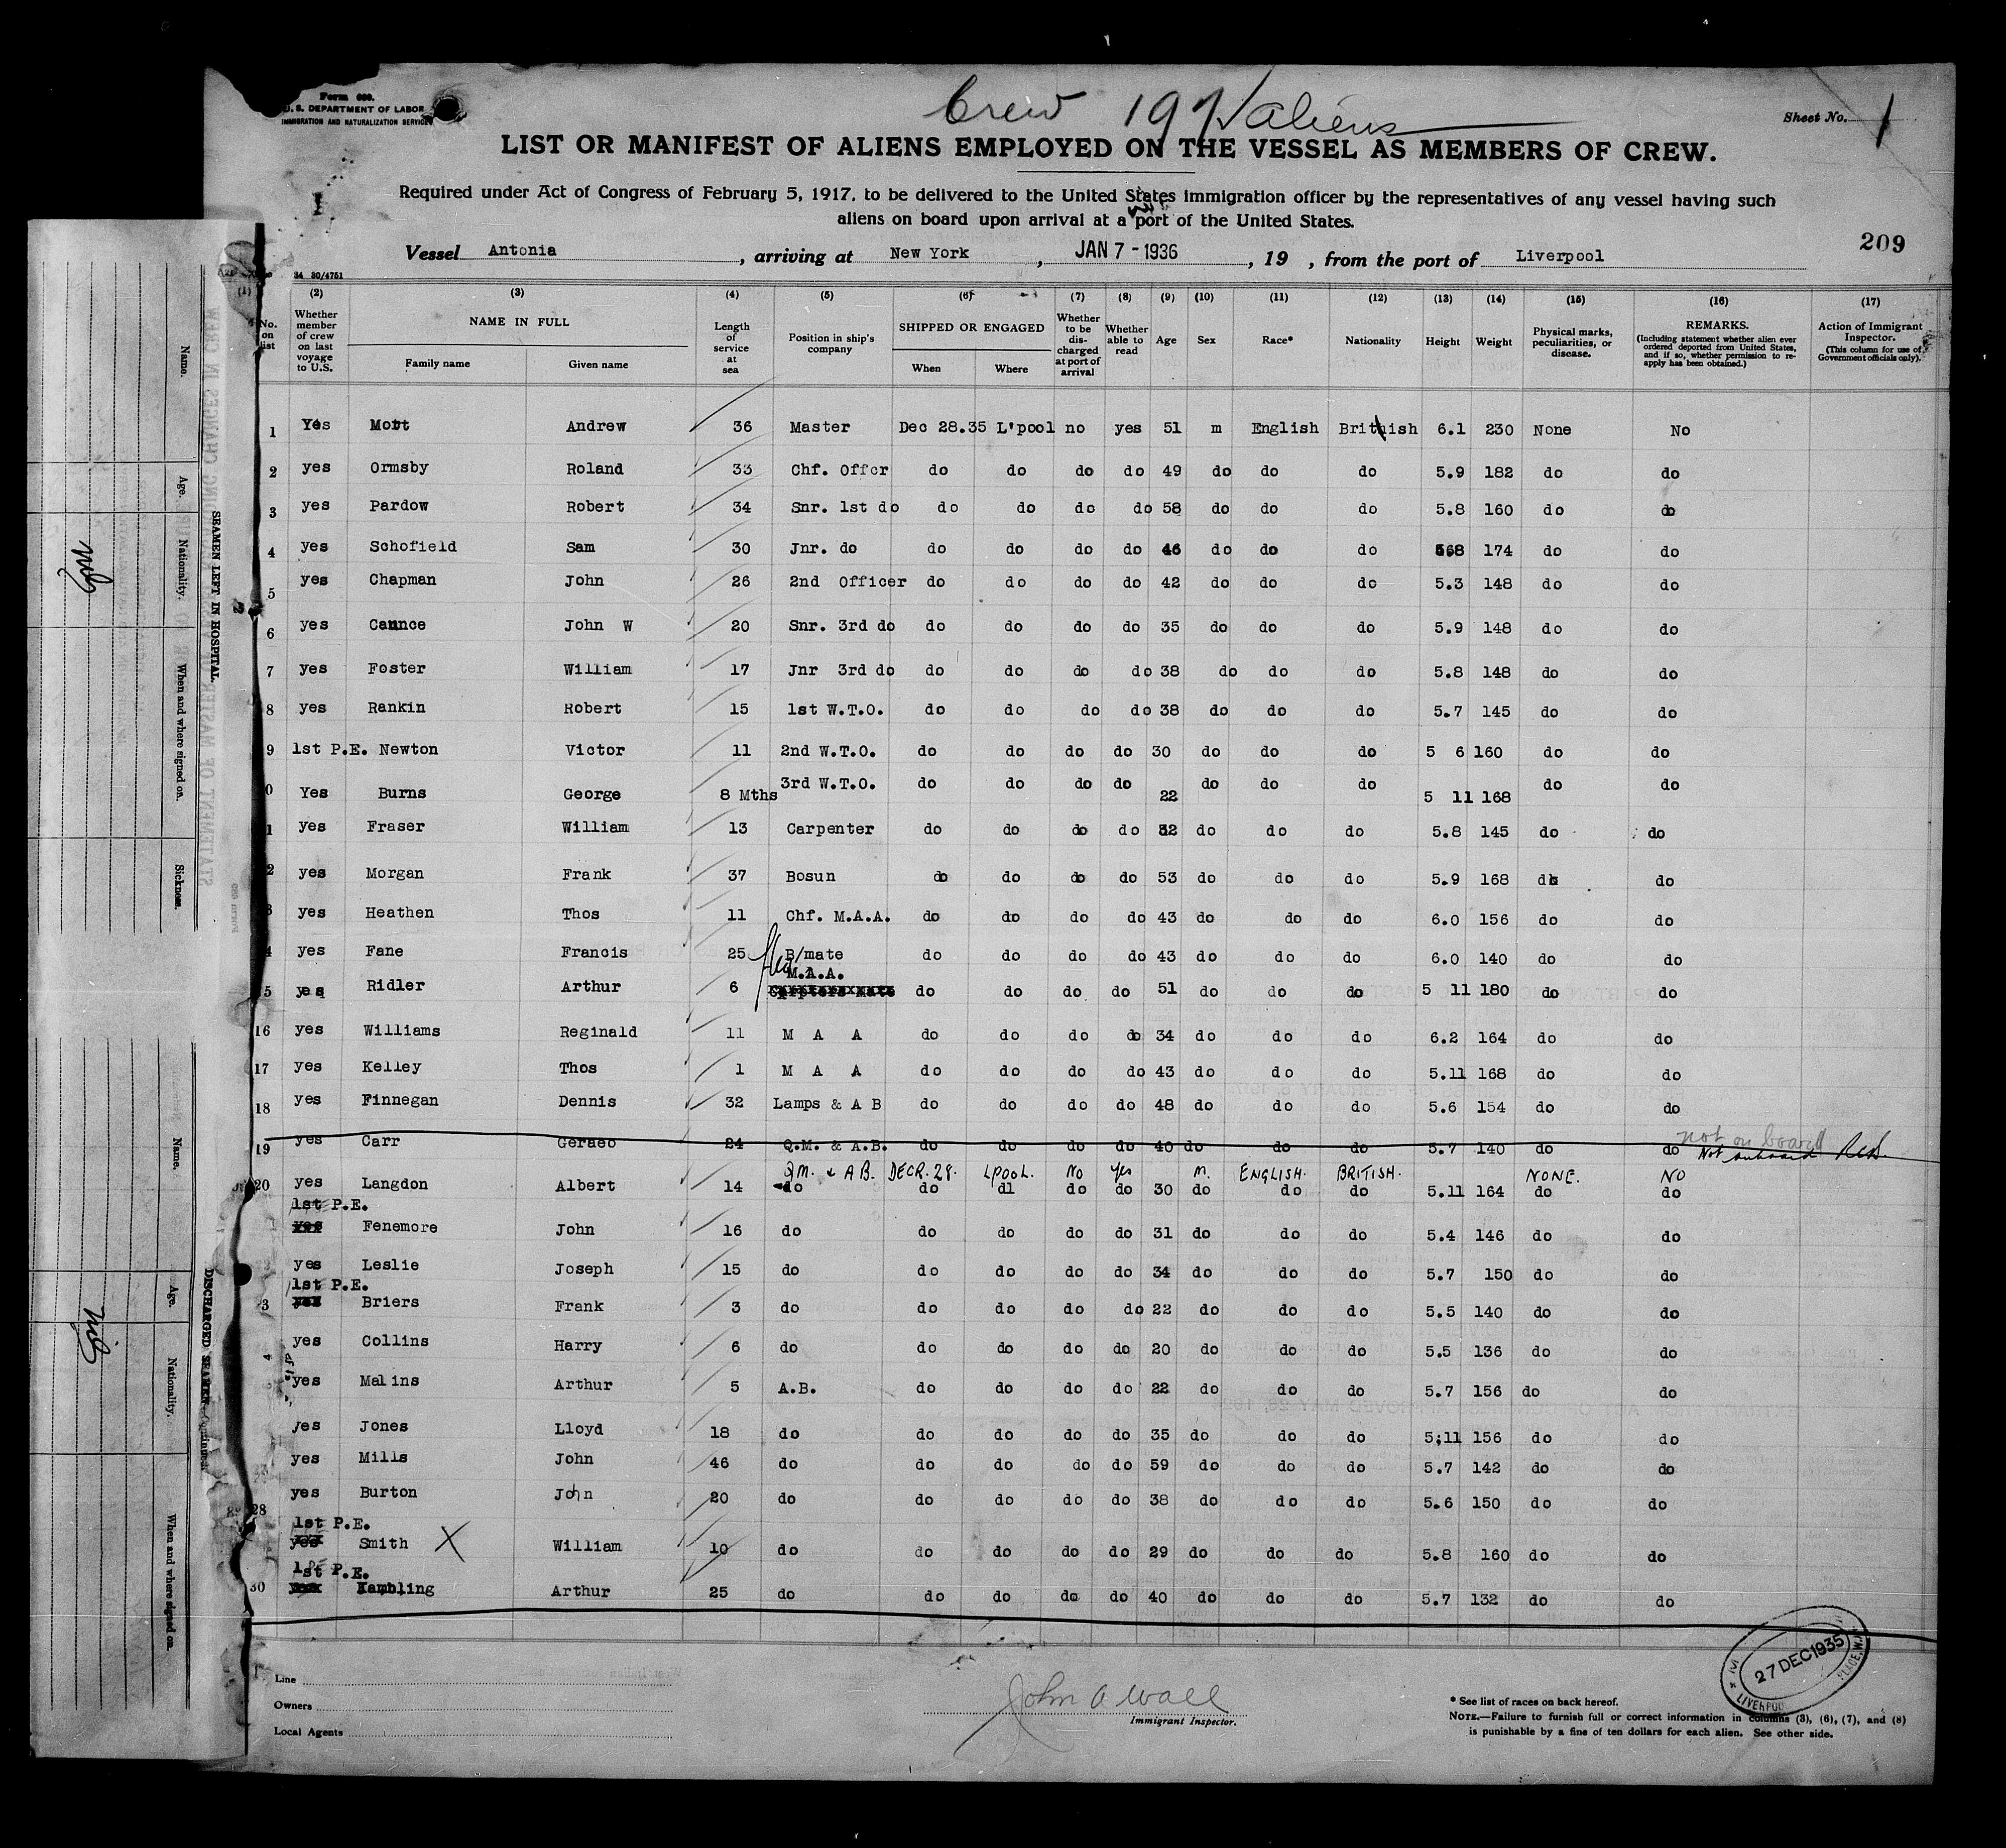 Form 680.
U. S. DEPARTMENT OF LABOR
IMMIGRATION AND NATURALIZATION SERVICE
Crew 197 aliens
Sheet No. 1
LIST OR MANIFEST OF ALIENS EMPLOYED ON THE VESSEL AS MEMBERS OF CREW.
Required under Act of Congress of February 5, 1917, to be delivered to the United States immigration officer by the representatives of any vessel having such
aliens on board upon arrival at a port of the United States.
209
Vessel Antonia, arriving at New York, JAN 7 - 1936, 19 , from the port of Liverpool
34 30/4751
(1) (2) (3) (4) (5) (6) (7) (8) (9) (10) (11) (12) (13) (14) (15) (16) (17)
No. on list
Whether member of crew on last voyage to U.S.
NAME IN FULL
Family name Given name
Length of service at sea
Position in ship's company
SHIPPED OR ENGAGED
When Where
Whether to be discharged at port of arrival
Whether able to read
Age
Sex
Race*
Nationality
Height
Weight
Physical marks, peculiarities, or disease.
REMARKS.
(Including statement whether alien ever ordered deported from United States, and if so, whether permission to re-apply has been obtained.)
Action of Immigrant Inspector.
(This column for use of Government officials only).
1 Yes Mott Andrew 36 Master Dec 28.35 L'pool no yes 51 m English British 6.1 230 None No
2 yes Ormsby Roland 33 Chf. Offcr do do do do 49 do do do 5.9 182 do do
3 yes Pardow Robert 34 Snr. 1st do do do do do 58 do do do 5.8 160 do do
4 yes Schofield Sam 30 Jnr. do do do do do 46 do do do 568 174 do do
5 yes Chapman John 26 2nd Officer do do do do 42 do do do 5.3 148 do do
6 yes Caunce John W 20 Snr. 3rd do do do do do 35 do do do 5.9 148 do do
7 yes Foster William 17 Jnr 3rd do do do do do 38 do do do 5.8 148 do do
8 yes Rankin Robert 15 1st W.T.O. do do do do 38 do do do 5.7 145 do do
9 1st P.E. Newton Victor 11 2nd W.T.O. do do do do 30 do do do 5 6 160 do do
0 Yes Burns George 8 Mths 3rd W.T.O. do do do do 22 do do do 5 11 168 do do
1 yes Fraser William 13 Carpenter do do do do 32 do do do 5.8 145 do do
2 yes Morgan Frank 37 Bosun do do do do 53 do do do 5.9 168 do do
3 yes Heathen Thos 11 Chf. M.A.A. do do do do 43 do do do 6.0 156 do do
4 yes Fane Francis 25 B/mate do do do do 43 do do do 6.0 140 do do
M.A.A.
5 yes Ridler Arthur 6 Crpters Mate do do do do 51 do do do 5 11 180 do do
16 yes Williams Reginald 11 M A A do do do do 34 do do do 6.2 164 do do
17 yes Kelley Thos 1 M A A do do do do 43 do do do 5.11 168 do do
18 yes Finnegan Dennis 32 Lamps & A B do do do do 48 do do do 5.6 154 do do
not on board
19 yes Carr Geraeo 24 Q.M. & A.B. do do do do 40 do do do 5.7 140 do do Not onboard
Q.M. & A B. DECR. 28. LPOOL. No Yes M. ENGLISH. BRITISH. NONE. NO
20 yes Langdon Albert 14 do do dl do do 30 do do do 5.11 164 do do
1st P.E.
1 yes Fenemore John 16 do do do do do 31 do do do 5.4 146 do do
yes Leslie Joseph 15 do do do do do 34 do do do 5.7 150 do do
1st P.E.
3 yes Briers Frank 3 do do do do do 22 do do do 5.5 140 do do
4 yes Collins Harry 6 do do do do do 20 do do do 5.5 136 do do
yes Malins Arthur 5 A.B. do do do do 22 do do do 5.7 156 do do
yes Jones Lloyd 18 do do do do do 35 do do do 5;11 156 do do
yes Mills John 46 do do do do do 59 do do do 5.7 142 do do
28 yes Burton John 20 do do do do do 38 do do do 5.6 150 do do
1st P.E.
yes Smith X William 10 do do do do do 29 do do do 5.8 160 do do
1st P.E.
30 Kambling Arthur 25 do do do do do 40 do do do 5.7 132 do do
Line
Owners
Local Agents
John A Wall
Immigrant Inspector.
* See list of races on back hereof.
NOTE.—Failure to furnish full or correct information in columns (3), (6), (7), and (8)
is punishable by a fine of ten dollars for each alien. See other side.
27 DEC 1935
LIVERPOOL
Name.
Age.
Nationality.
When and where signed on.
Sickness.
SEAMEN LEFT IN HOSPITAL.
Nil
Name.
Age.
Nationality.
When and where signed on.
DISCHARGED SEAMEN—Continued.
Nil
STATEMENT OF MASTER REGARDING CHANGES IN CREW